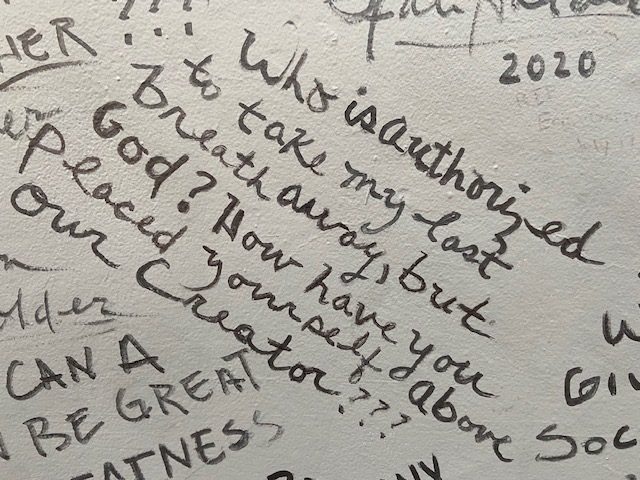 HER
2020
Who is authorized
to take my last
breath away, but
God? How have you
placed yourself above
our Creator???
older
CAN A
BE GREAT
EATNESS
W
GIV
SOC
NY